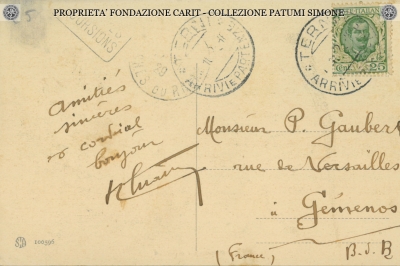 PROPRIETA' FONDAZIONE CARIT - COLLEZIONE PATUMI SIMONE
TERNI
ARRIVI E PARTENZE
TERNI
ARRIVI E
25
Amitiés
sincères
& cordial
bonjour
Monsieur P. Gaubert
rue de Versailles
à Gémenos
(France)
B. d. R
200596